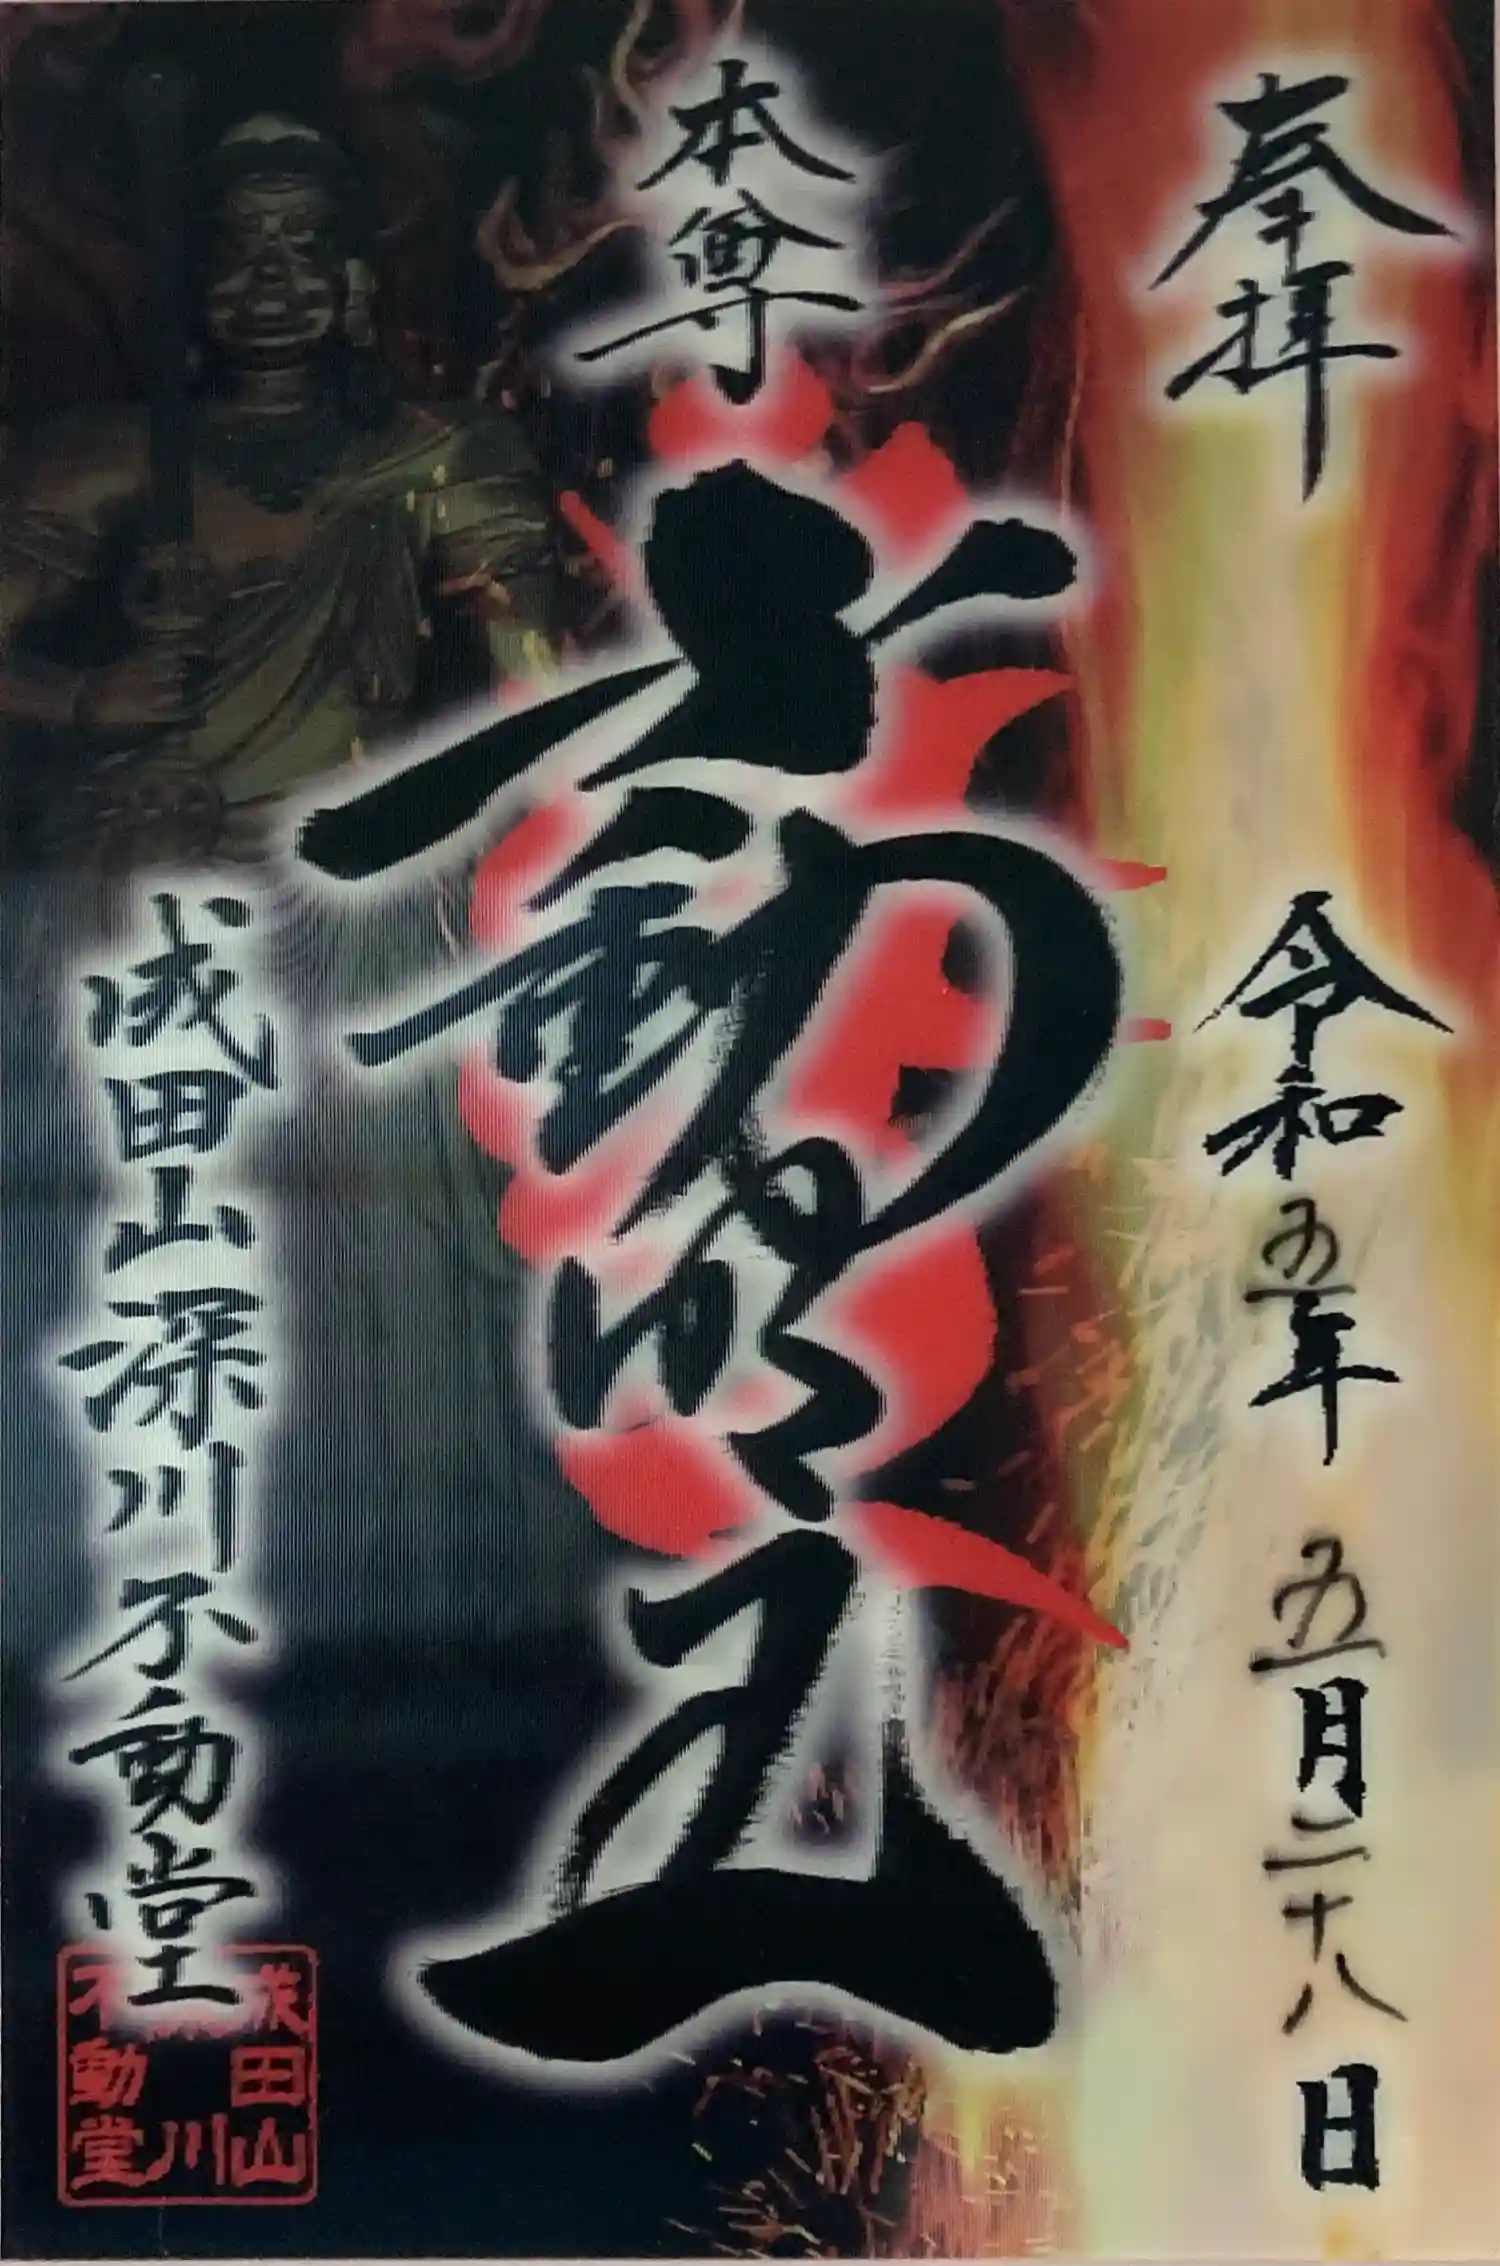 奉拝
令和五年 五月二十八日
本尊
不動明王
成田山深川不動堂
成田山
川
不動堂